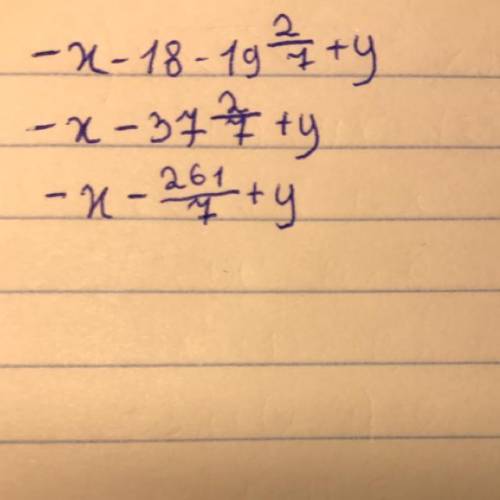 -x-18-19 2/7+y
-x-37 2/7+y
-x-261/7+y